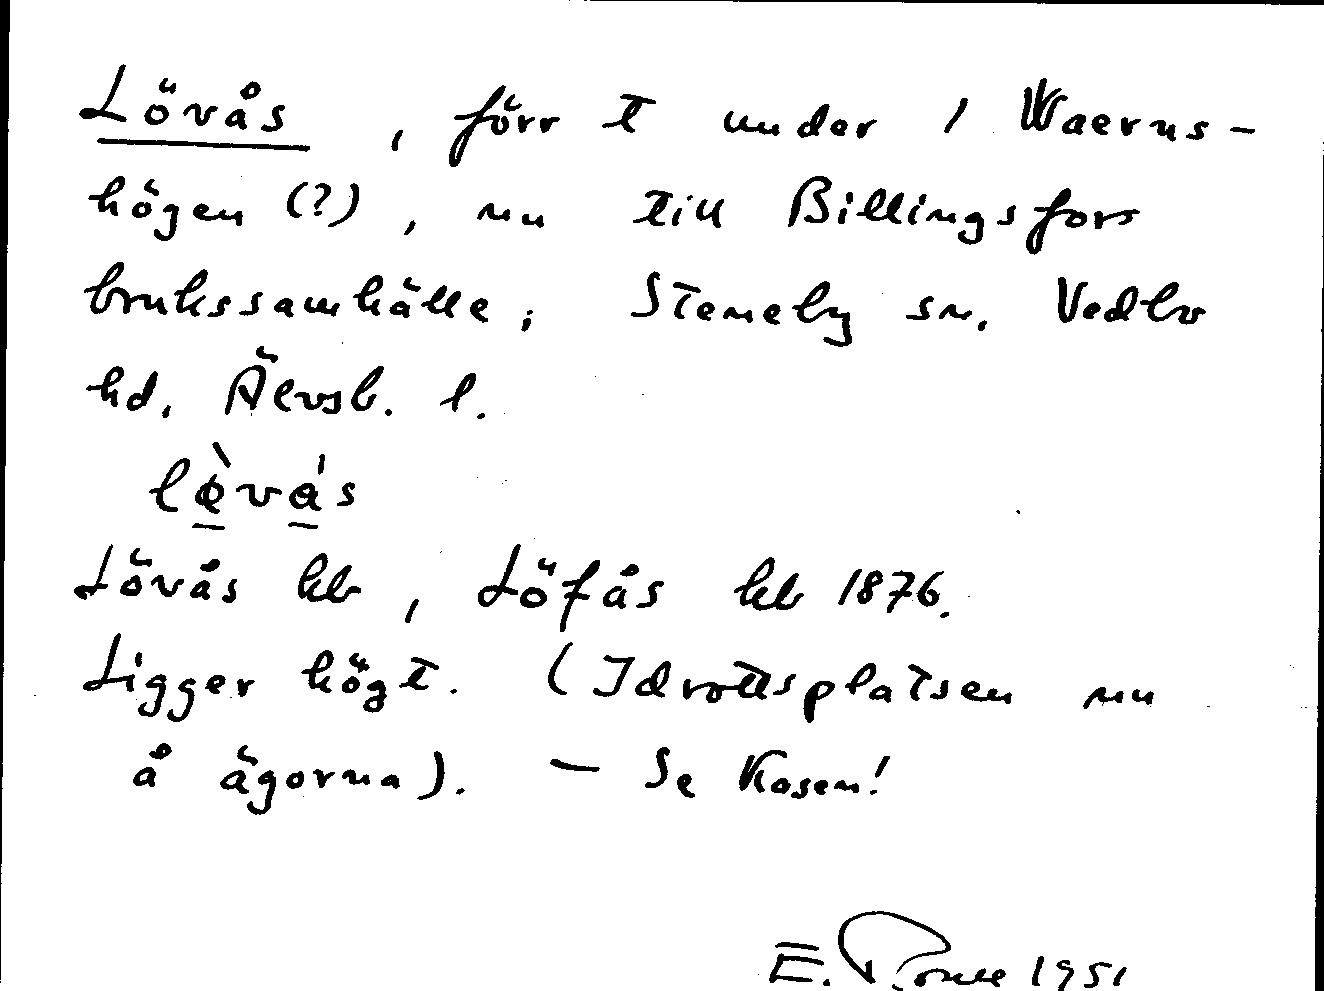 Lövås, förr t under 1 Waerns-
högen (?), nu till Billingsfors
brukssamhälle; Steneby sn. Vedbo
hd. Älvsb. l.
lø̀vás
Lövås kb, Löfås kb 1876.
Ligger högt. (Idrottsplatsen nu
å ägorna). — Se Kasen!
E. 1951